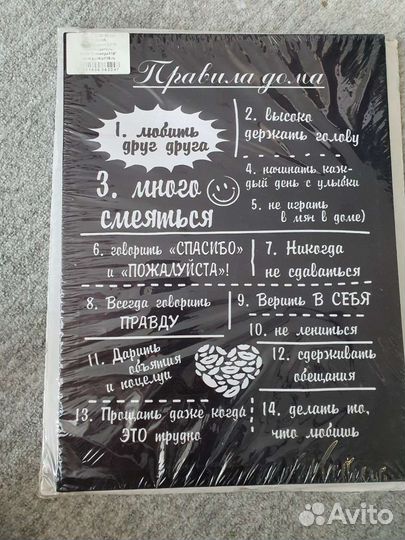 Правила дома
1. любить
друг друга
2. высоко
держать голову
3. много
смеяться
4. начинать каж-
дый день с улыбки
5. не играть
в мяч в доме)
6. говорить «СПАСИБО»
и «ПОЖАЛУЙСТА»!
7. Никогда
не сдаваться
8. Всегда говорить
ПРАВДУ
9. Верить В СЕБЯ
10. не лениться
11. Дарить
объятия
и поцелуи
12. сдерживать
обещания
13. Прощать даже когда
ЭТО трудно
14. делать то,
что любишь
Avito